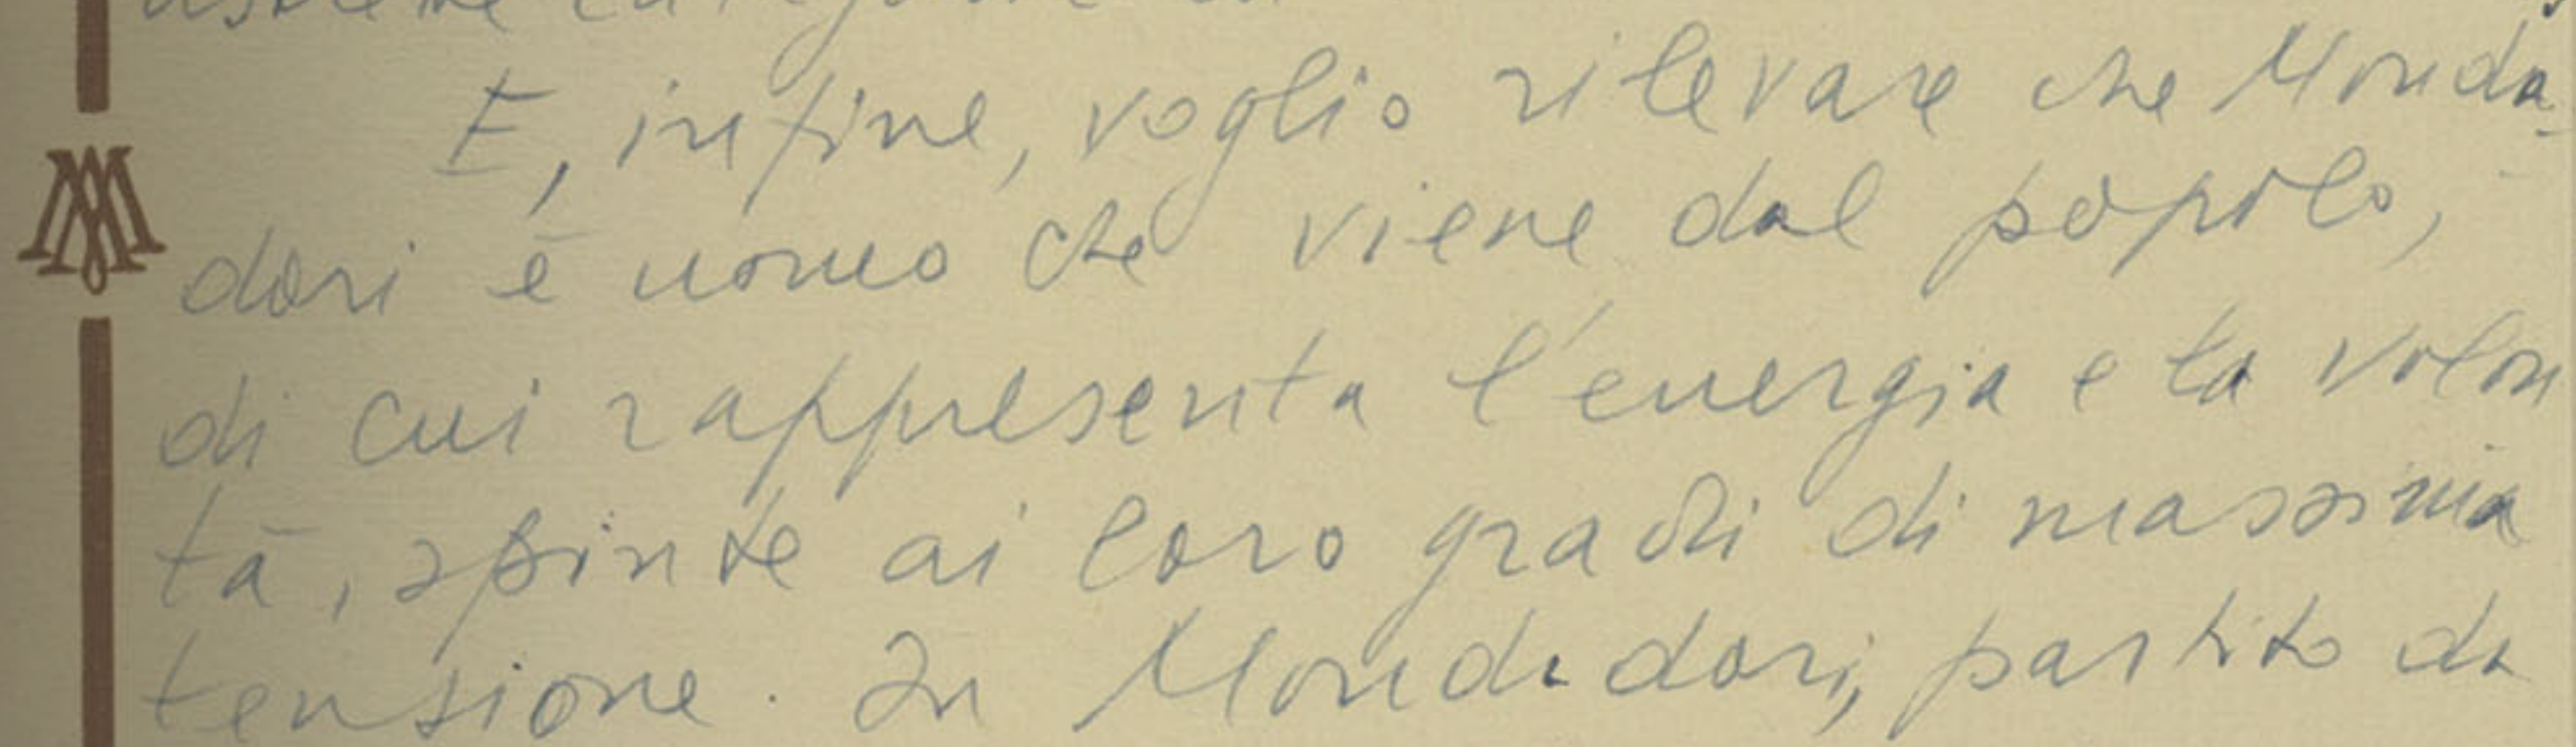 E, infine, voglio rilevare che Monda-
dori è uomo che viene dal popolo,
di cui rappresenta l'energia e la volon
tà, spinte ai loro gradi di massima
tensione. In Mondadori, partito da